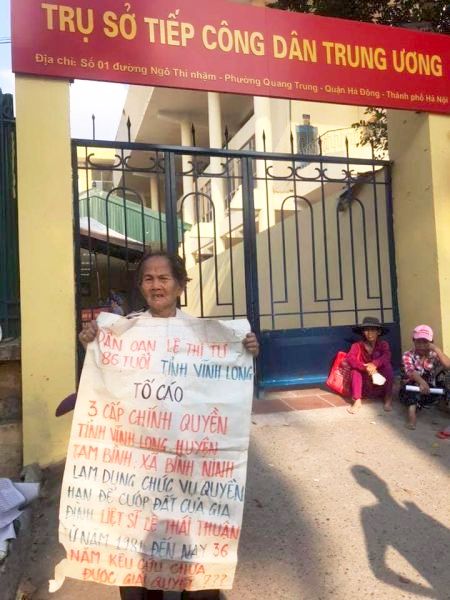 TRỤ SỞ TIẾP CÔNG DÂN TRUNG ƯƠNG
Địa chỉ: Số 01 đường Ngô Thì nhậm - Phường Quang Trung - Quận Hà Đông - Thành phố Hà Nội
DÂN OAN LÊ THỊ TƯ
86 TUỔI TỈNH VĨNH LONG
TỐ CÁO
3 CẤP CHÍNH QUYỀN
TỈNH VĨNH LONG. HUYỆN
TAM BÌNH. XÃ BÌNH NINH
LẠM DỤNG CHỨC VỤ QUYỀN
HẠN ĐỂ CƯỚP ĐẤT CỦA GIA
ĐÌNH LIỆT SĨ LÊ THÁI THUẬN
TỪ NĂM 1981 ĐẾN NAY 36
NĂM KÊU CỨU CHƯA
ĐƯỢC GIẢI QUYẾT ???